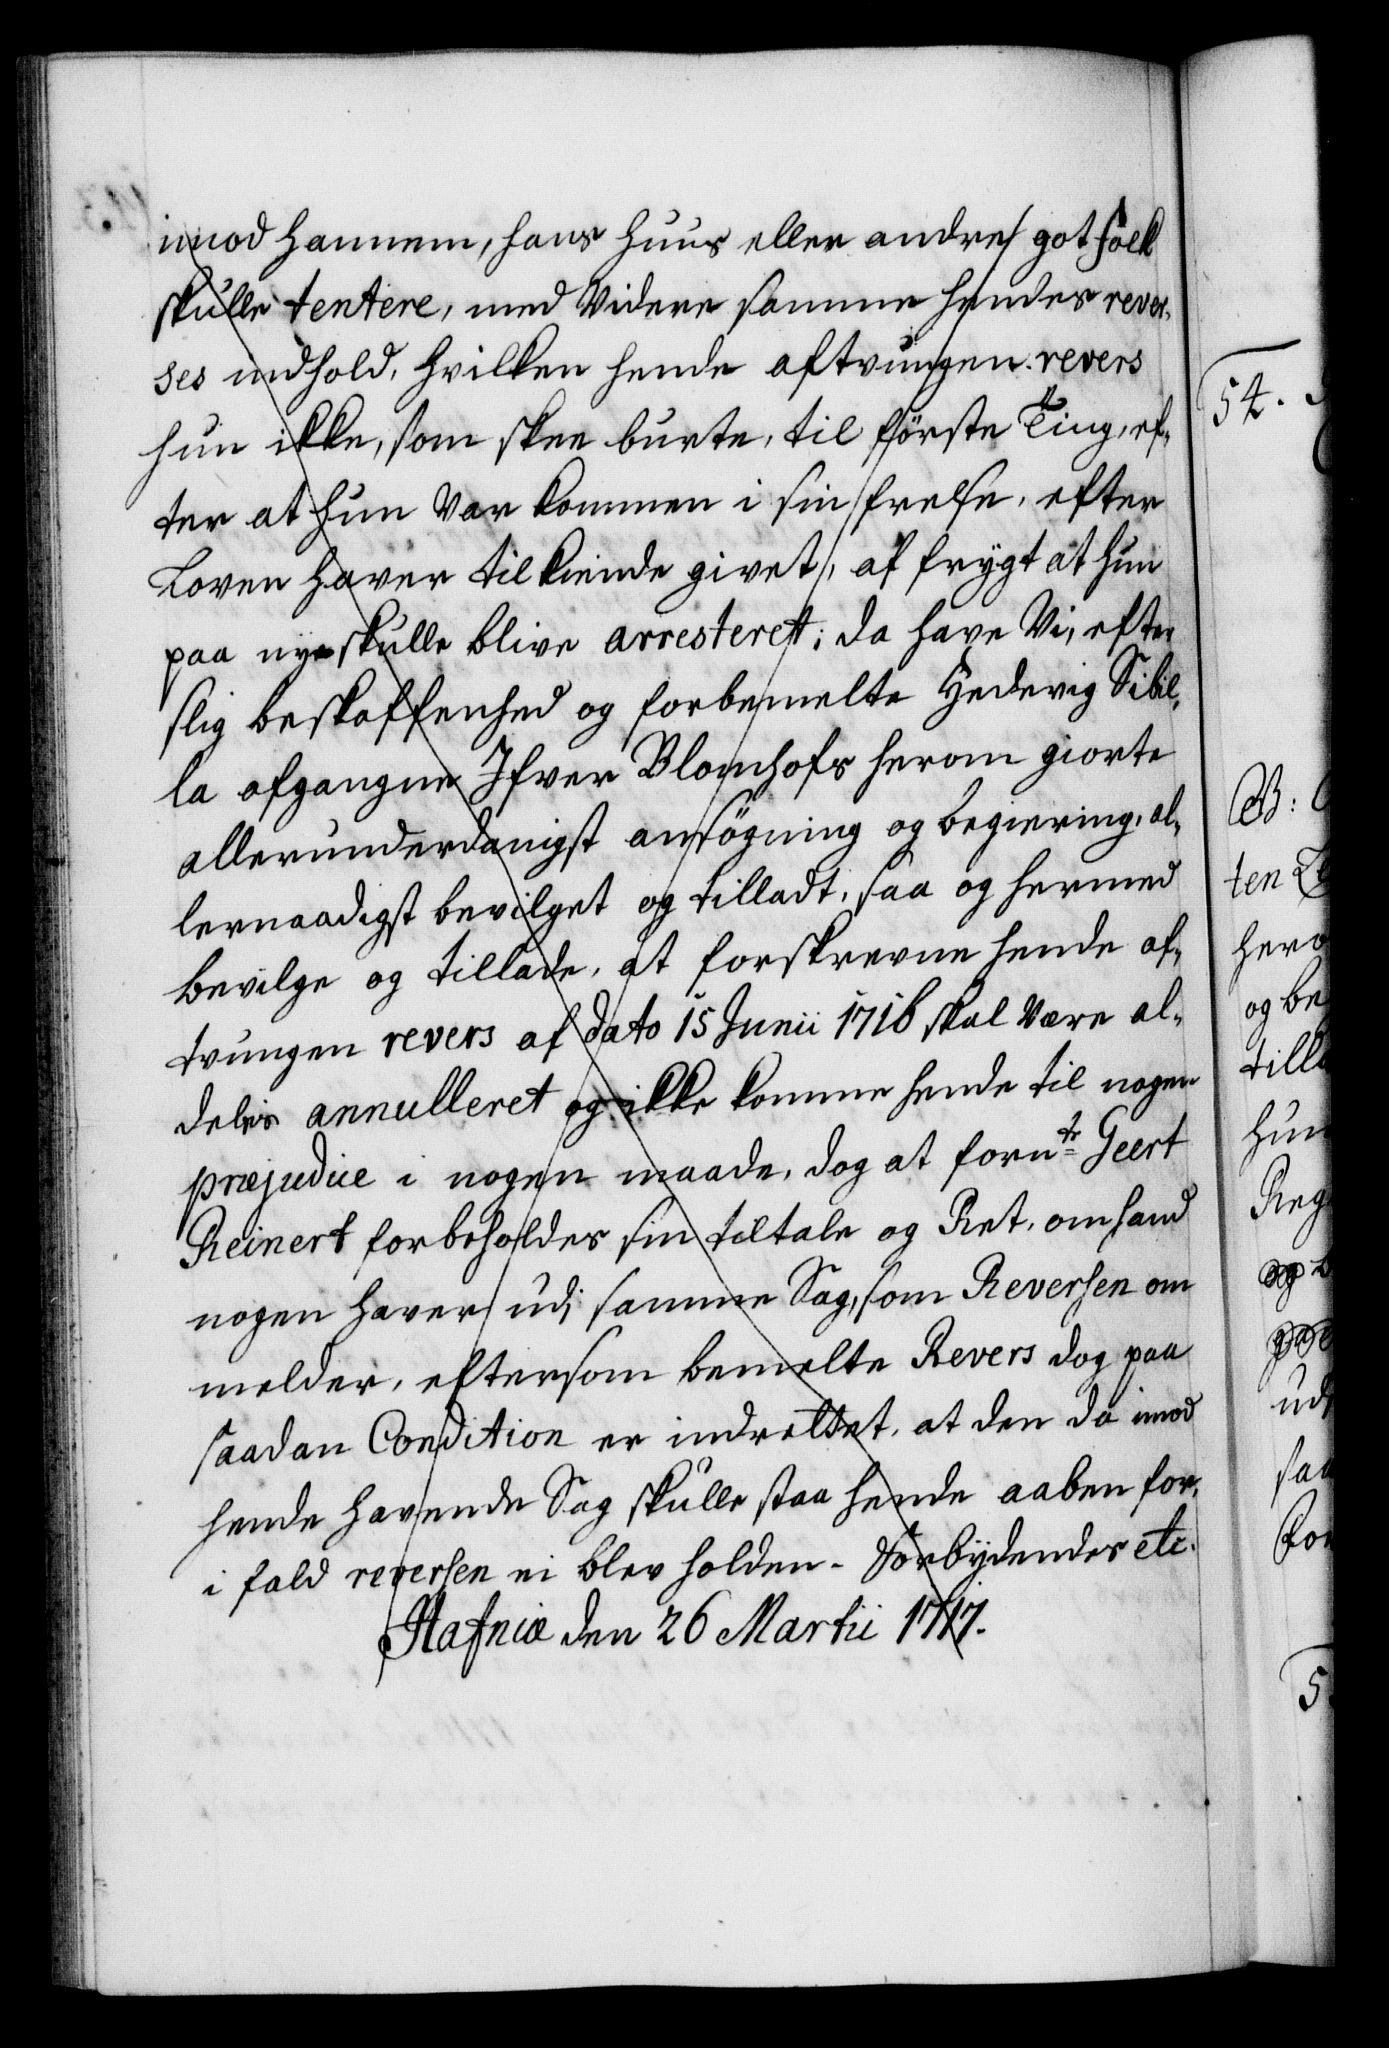 imod hannem, hans huus eller andre got folk
skulle tentere, med videre samme hendes rever-
ses indhold, hvilken hende aftvungen revers
hun ikke, som skee burte, til förste Ting, ef-
ter at hun var kommen i sin frelse, efter
Loven haver tilkiende givet, af frygt at hun
paa nye skulle blive arresteret; da have Vi, efter
slig beskaffenhed og forbemelte Hedevig Sibil-
la afgangne Ifver Blomhofs herom giorte
allerunderdanigst ansögning og begiering, al-
lernaadigst bevilget og tilladt, saa og hermed
bevilge og tillade, at forskrevne hende af-
tvungen revers af dato 15 Junii 1716 skal være al-
deles annulleret og ikke komme hende til nogen
præjudice i nogen maade, dog at forn.te Geert
Reinert forbeholdes sin tiltale og Ret, om hand
nogen haver udi samme Sag, som Reversen om
melder, eftersom bemelte Revers dog paa
saadan Condition er indrettet, at den da imod
hende havende Sag skulle staa hende aaben for,
i fald reversen ei blev holden. Forbydendes etc.
Hafniæ den 26 Martii 1717.
54.
ten
hero
og be
till
hun
Reg
og
ud
saa
For
5